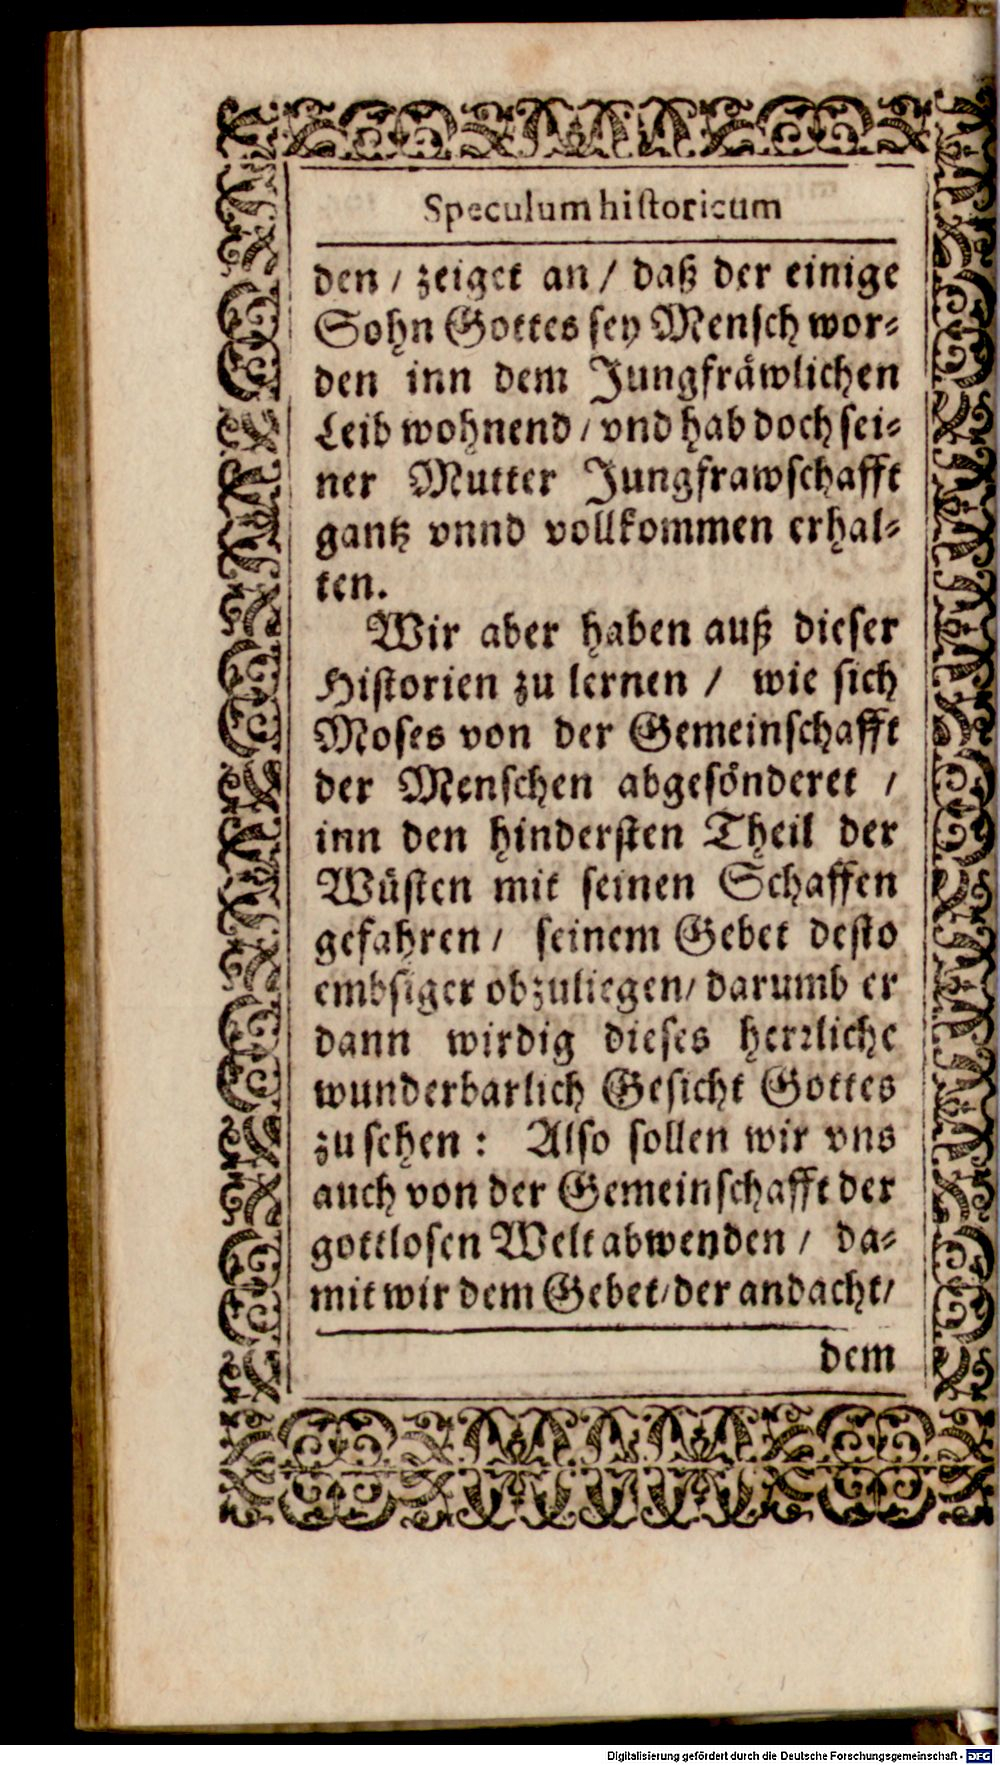 Speculum historicum
den / zeiget an / daß der einige
Sohn Gottes sey Mensch wor-
den inn dem Jungfräwlichen
Leib wohnend / vnd hab doch sei-
ner Mutter Jungfrawschafft
gantz vnnd vollkommen erhal-
ten.
Wir aber haben auß dieser
Historien zu lernen / wie sich
Moses von der Gemeinschafft
der Menschen abgesönderet /
inn den hindersten Theil der
Wüsten mit seinen Schaffen
gefahren / seinem Gebet desto
embsiger obzuliegen / darumb er
dann wirdig dieses herrliche
wunderbarlich Gesicht Gottes
zu sehen : Also sollen wir vns
auch von der Gemeinschafft der
gottlosen Welt abwenden / da-
mit wir dem Gebet / der andacht /
dem
Digitalisierung gefördert durch die Deutsche Forschungsgemeinschaft - DFG